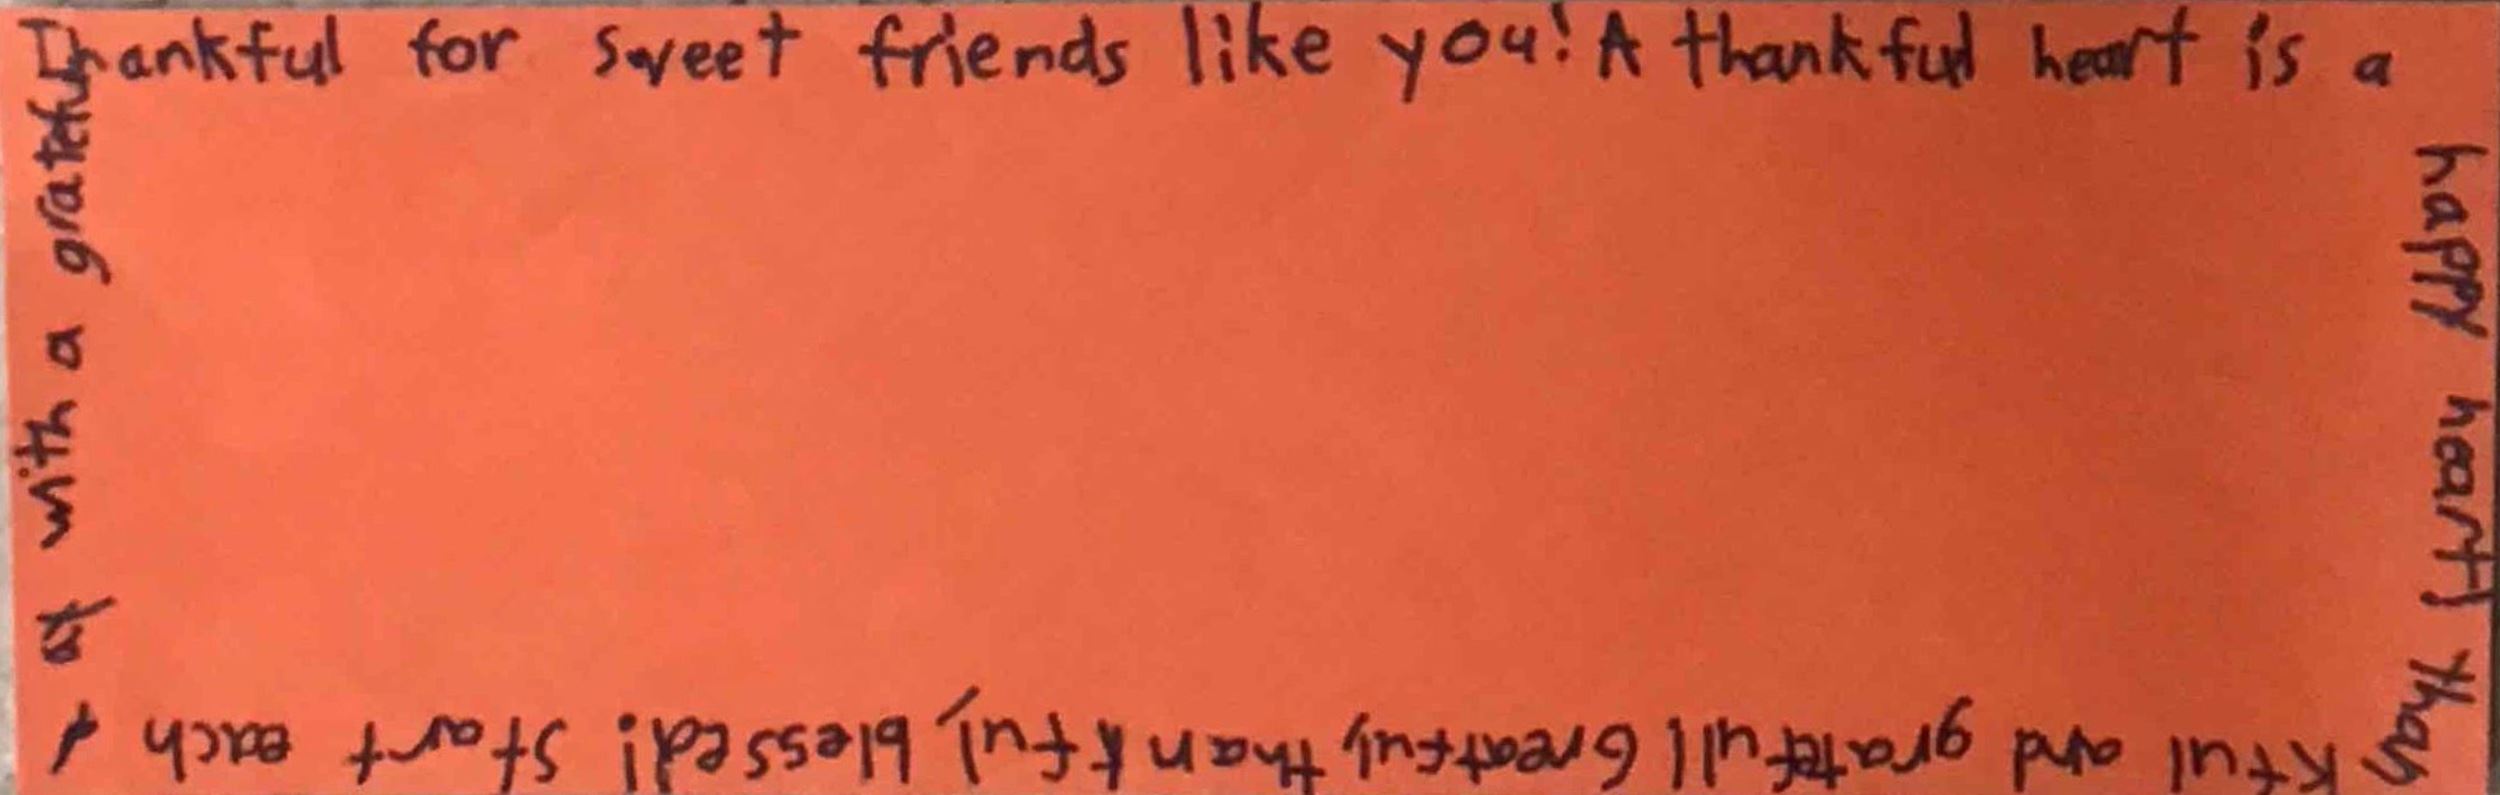 Thankful for sweet friends like you! A thankful heart is a
happy heart! Than
kful and gratefull Greatful, thankful, blessed! Start each
with a grateful